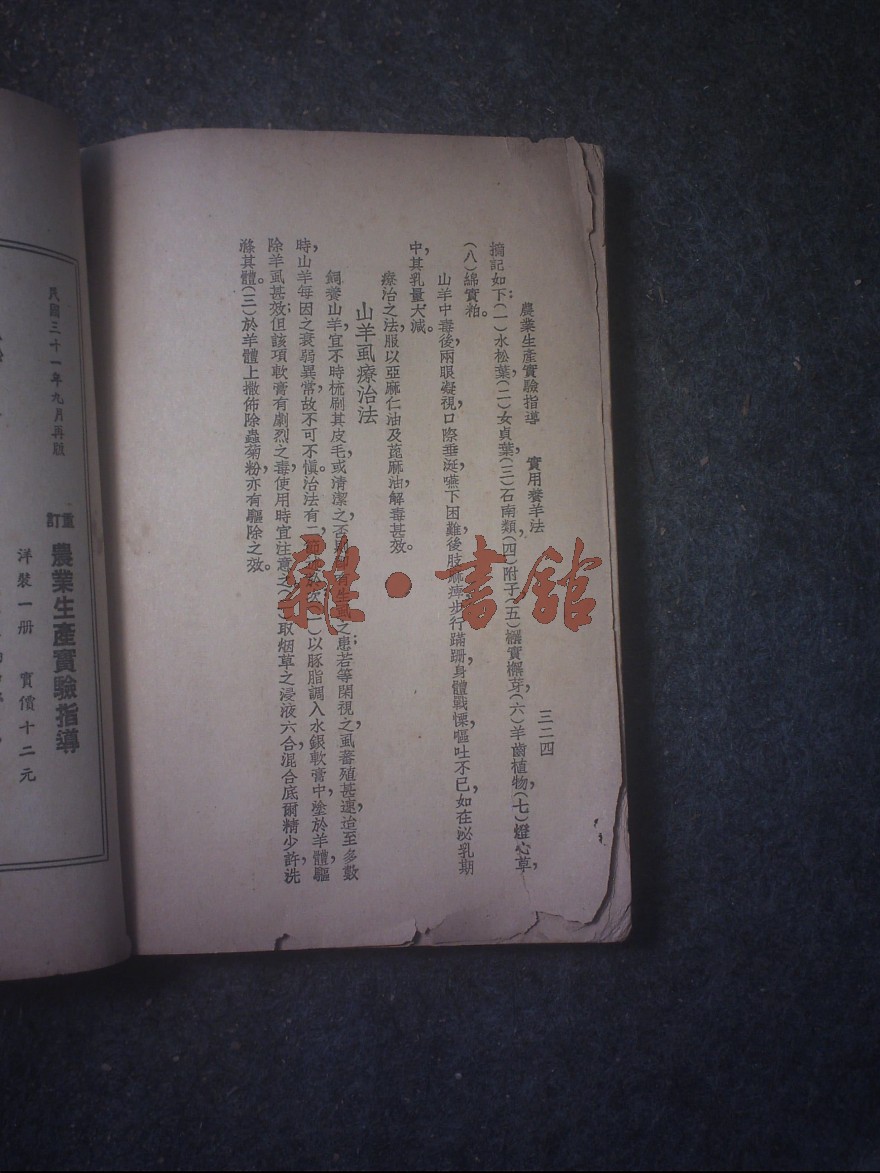 農業生產實驗指導　實用養羊法　三二四
摘記如下：(一)水松葉，(二)女貞葉，(三)石南類，(四)附子，(五)櫸實櫸芽，(六)羊齒植物，(七)燈心草，
(八)綿實粕。
山羊中毒後，兩眼凝視，口際垂涎，嚥下困難，後肢麻痺，步行蹣跚，身體戰慄，嘔吐不已，如在泌乳期
中，其乳量大減。
療治之法，服以亞麻仁油及蓖麻油，解毒甚效。
山羊虱療治法
飼養山羊，宜不時梳刷其皮毛，或清潔之，否則有生虱之患；若等閑視之，虱蕃殖甚速，迨至多數
時，山羊每因之衰弱異常，故不可不愼。治法有二：(一)以豚脂調入水銀軟膏中，塗於羊體，驅
除羊虱甚效；但該項軟膏有劇烈之毒，使用時宜注意之。取烟草之浸液六合，混合底爾精少許，洗
滌其體。(三)於羊體上撒佈除蟲菊粉，亦有驅除之效。
民國三十一年九月再版
重訂
農業生產實驗指導
洋裝一册　實價十二元
雜·書館